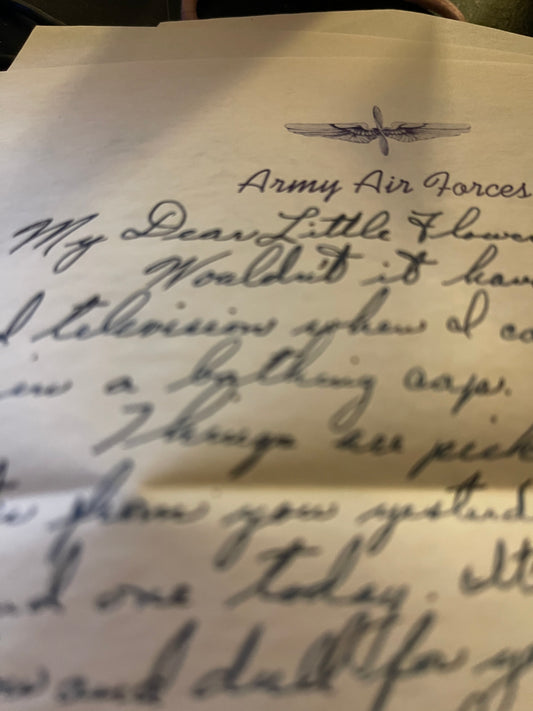 Army Air Forces
My Dear Little Flowe
Wouldn't it hav
d television when I co
in a bathing cap.
Things are pick
from you yesterd
one today. It
and dull for y